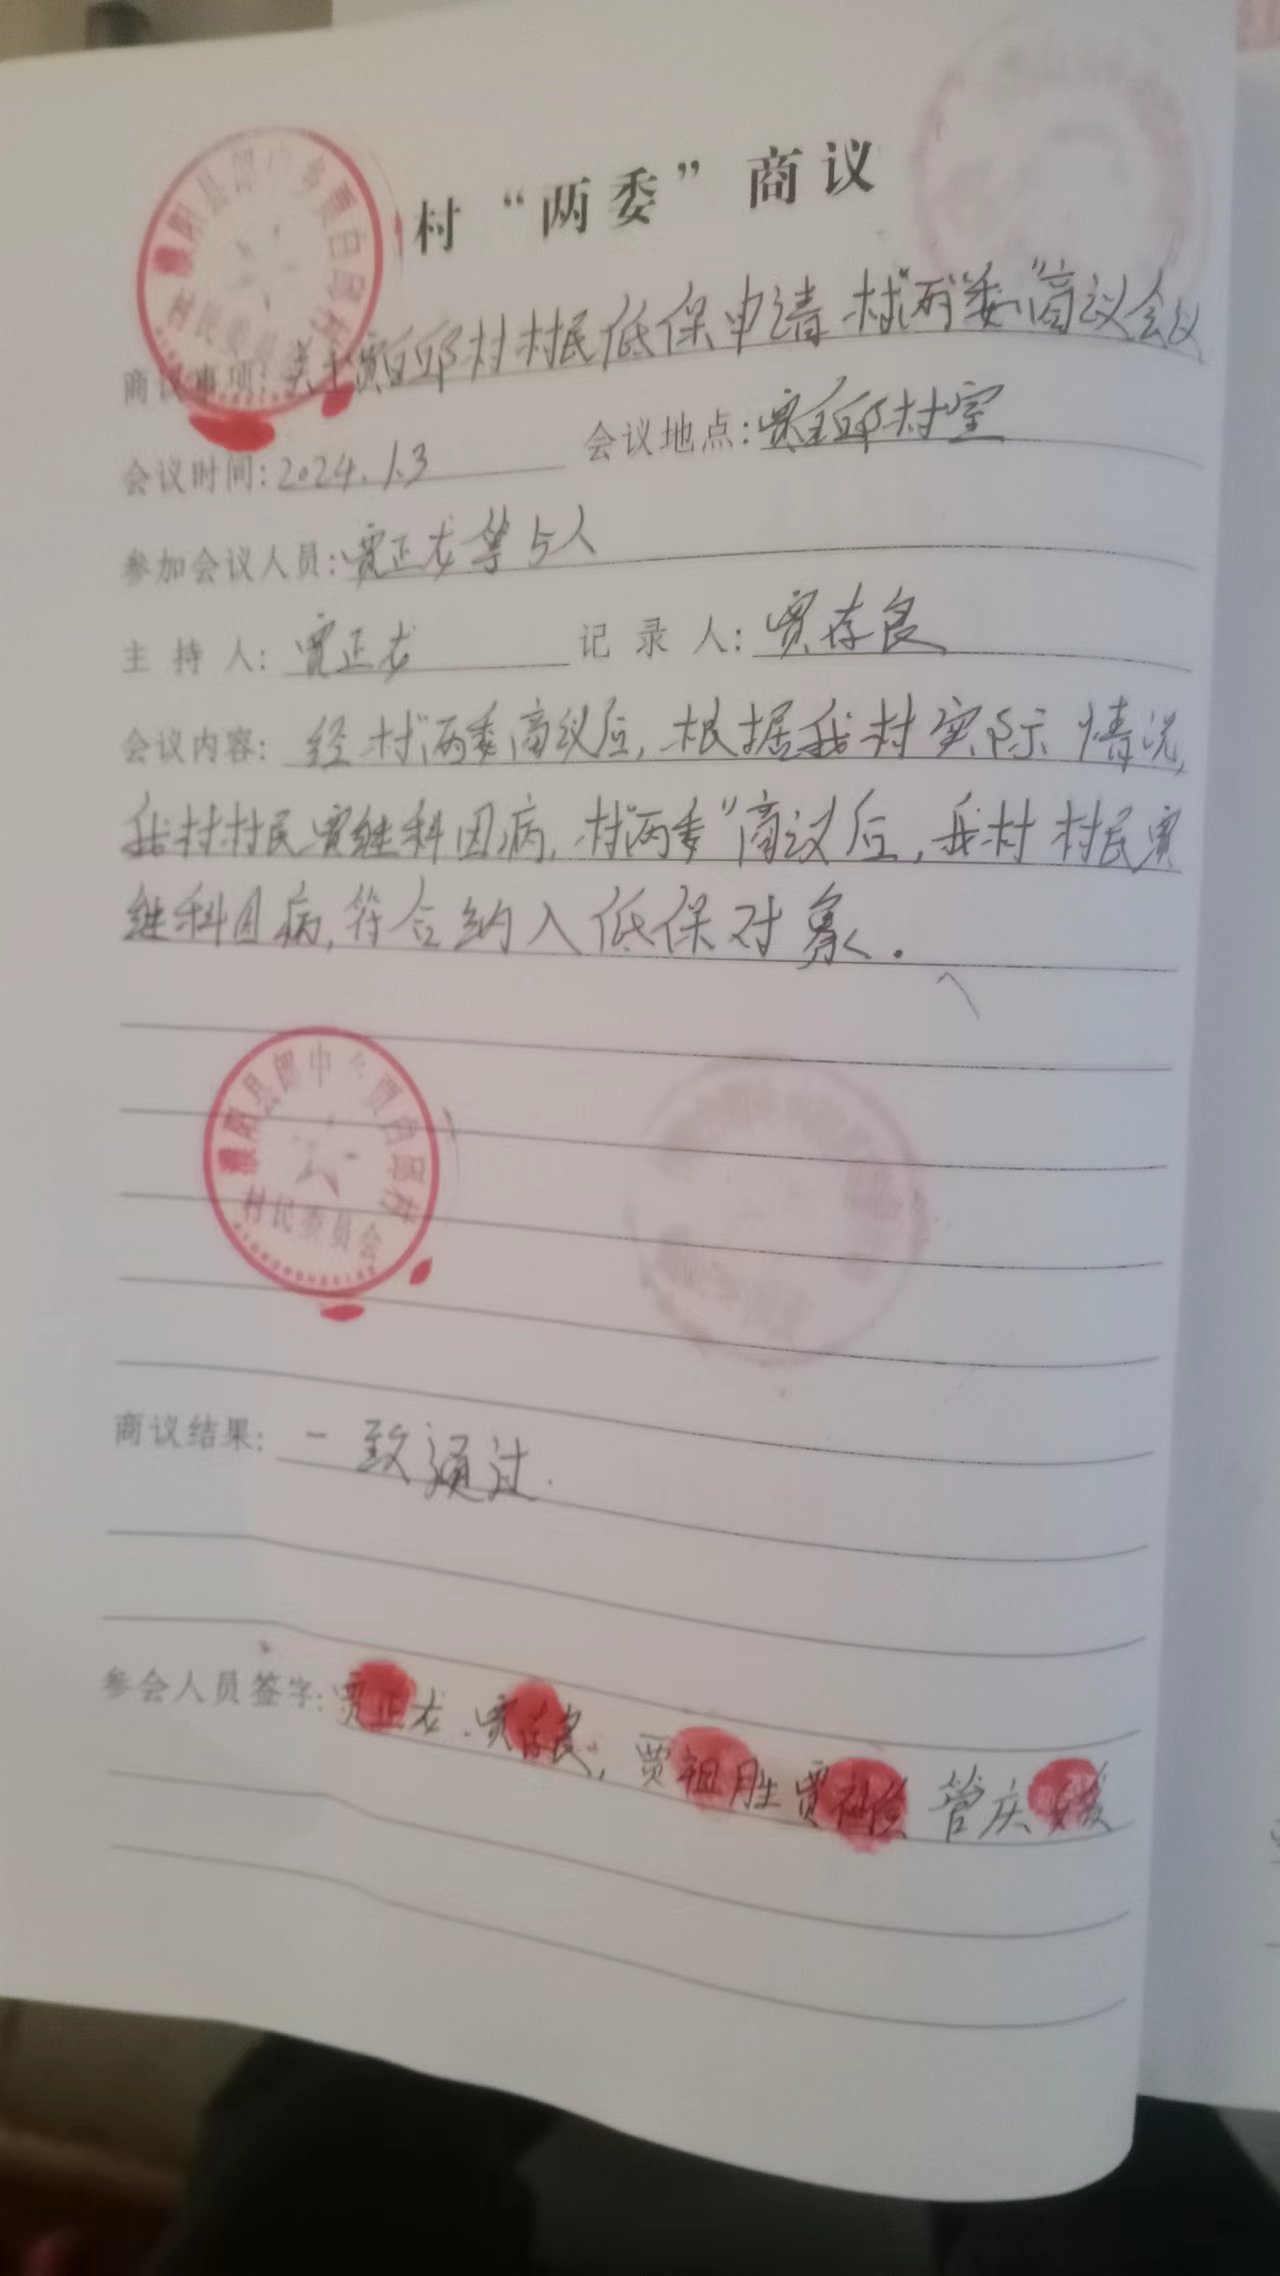 村“两委”商议
商议事项：关于贾白邱村村民低保申请村“两委”商议会议
会议时间：2024.1.3 会议地点：贾白邱村室
参加会议人员：贾正右等5人
主持人：贾正右 记录人：贾存良
会议内容：经村“两委商议后，根据我村实际情况，
我村村民贾继科因病，村“两委”商议后，我村村民贾
继科因病，符合纳入低保对象．
濮阳县郎中乡贾白邱村
村民委员会
商议结果：一致通过．
参会人员签字：贾正右．贾存良，贾祖胜 贾 管庆